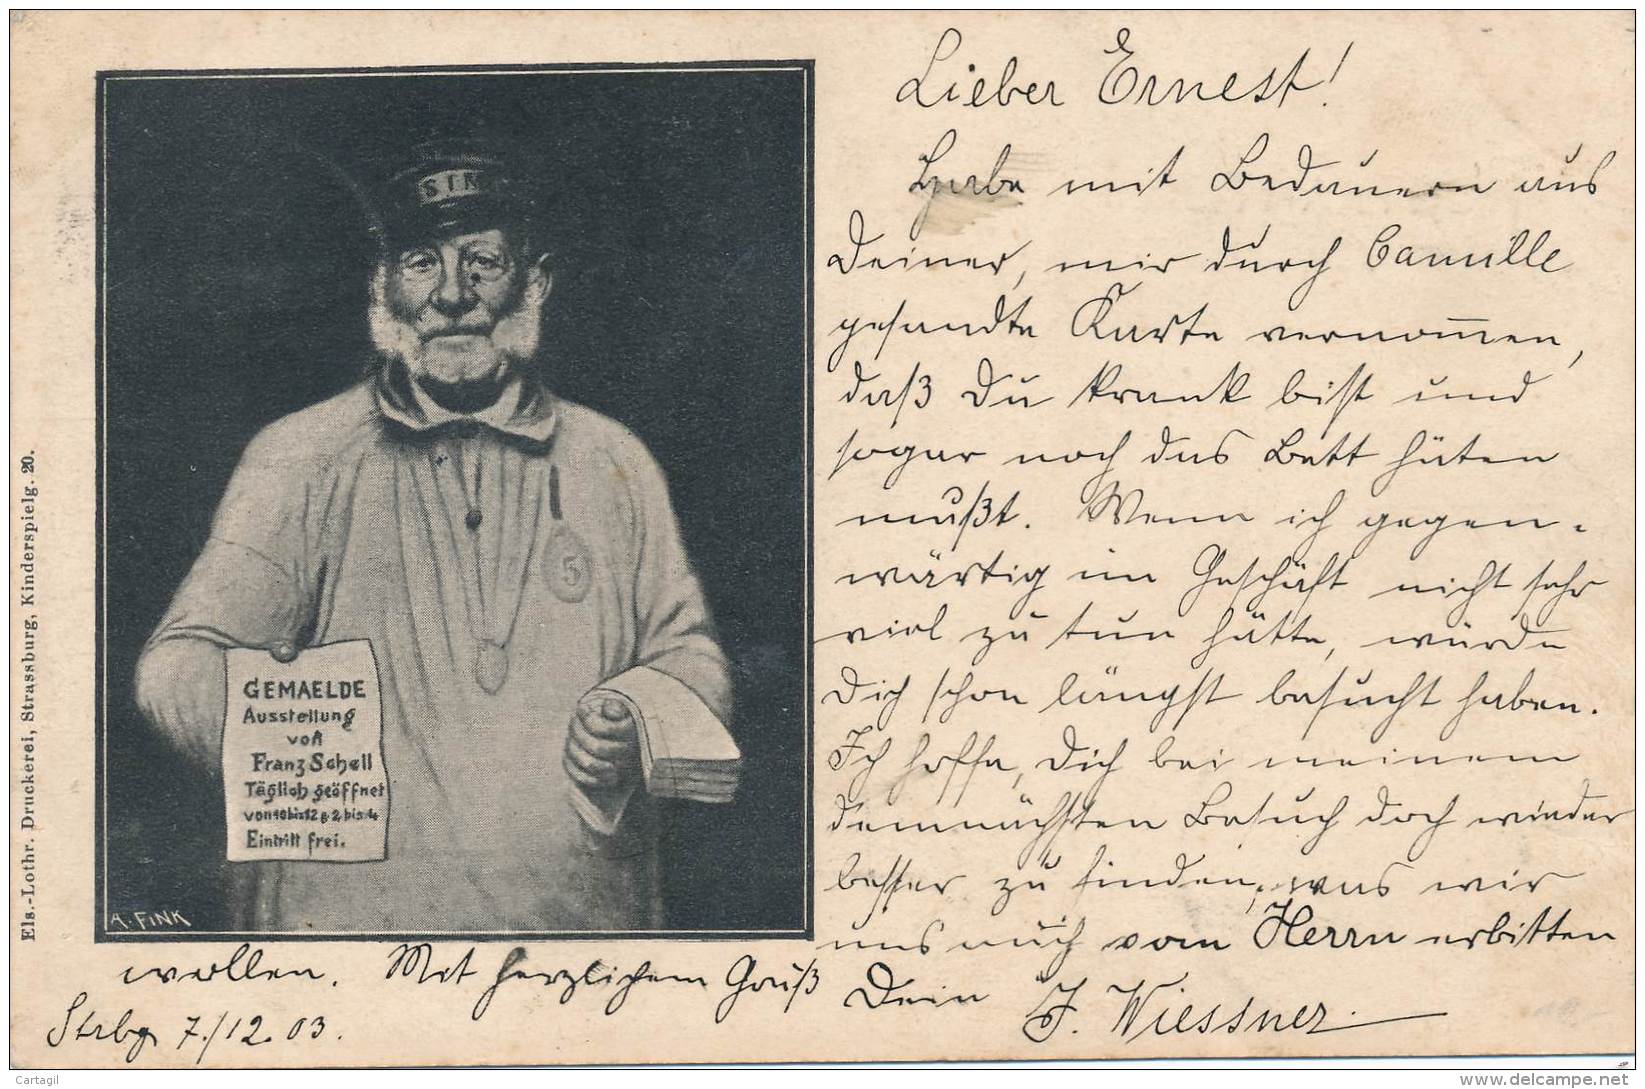 Lieber Ernest!
Habe mit Bedauern aus
Deiner, mir durch Camille
gesandte Karte vernom̄en,
daß Du krank bist und
sogar noch das Bett hüten
mußt. Wenn ich gegen-
wärtig im Geschäft nicht sehr
viel zu tun hätte, würde
Dich schon längst besucht haben.
Ich hoffe, Dich bei meinem
demnächsten Besuch doch wieder
besser zu finden, was wir
uns auch vom Herrn erbitten
wollen. Mit herzlichem Gruß
Dein J. Wiessner.
Strbg 7./12.03.
SIN
5
GEMAELDE
Ausstellung
von
Franz Schell
Täglich geöffnet
von 10 bis 12 & 2 bis 4
Eintritt frei.
A. FINK
Els.-Lothr. Druckerei, Strassburg, Kinderspielg. 20.
Cartagil
www.delcampe.net